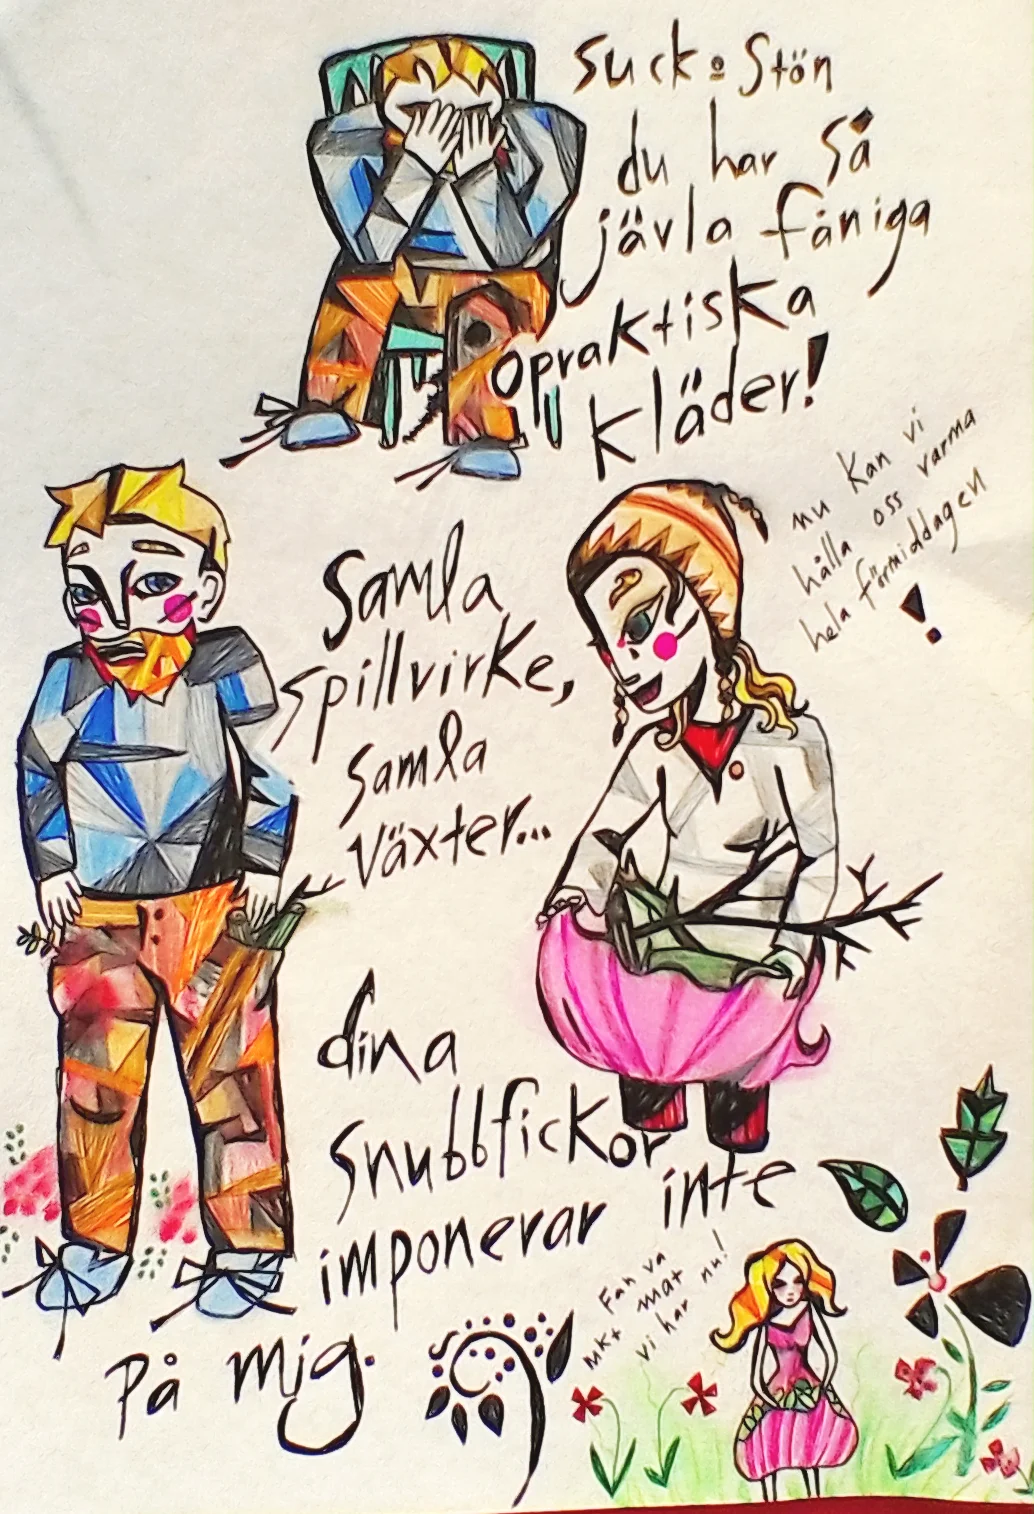 suck o Stön
du har så
jävla fåniga
opraktiska
kläder!
nu kan vi
hålla oss varma
hela förmiddagen
!
Samla
spillvirke,
samla
växter...
dina
snubbfickor
imponerar inte
på mig.
Fan va
mkt mat
vi har nu!